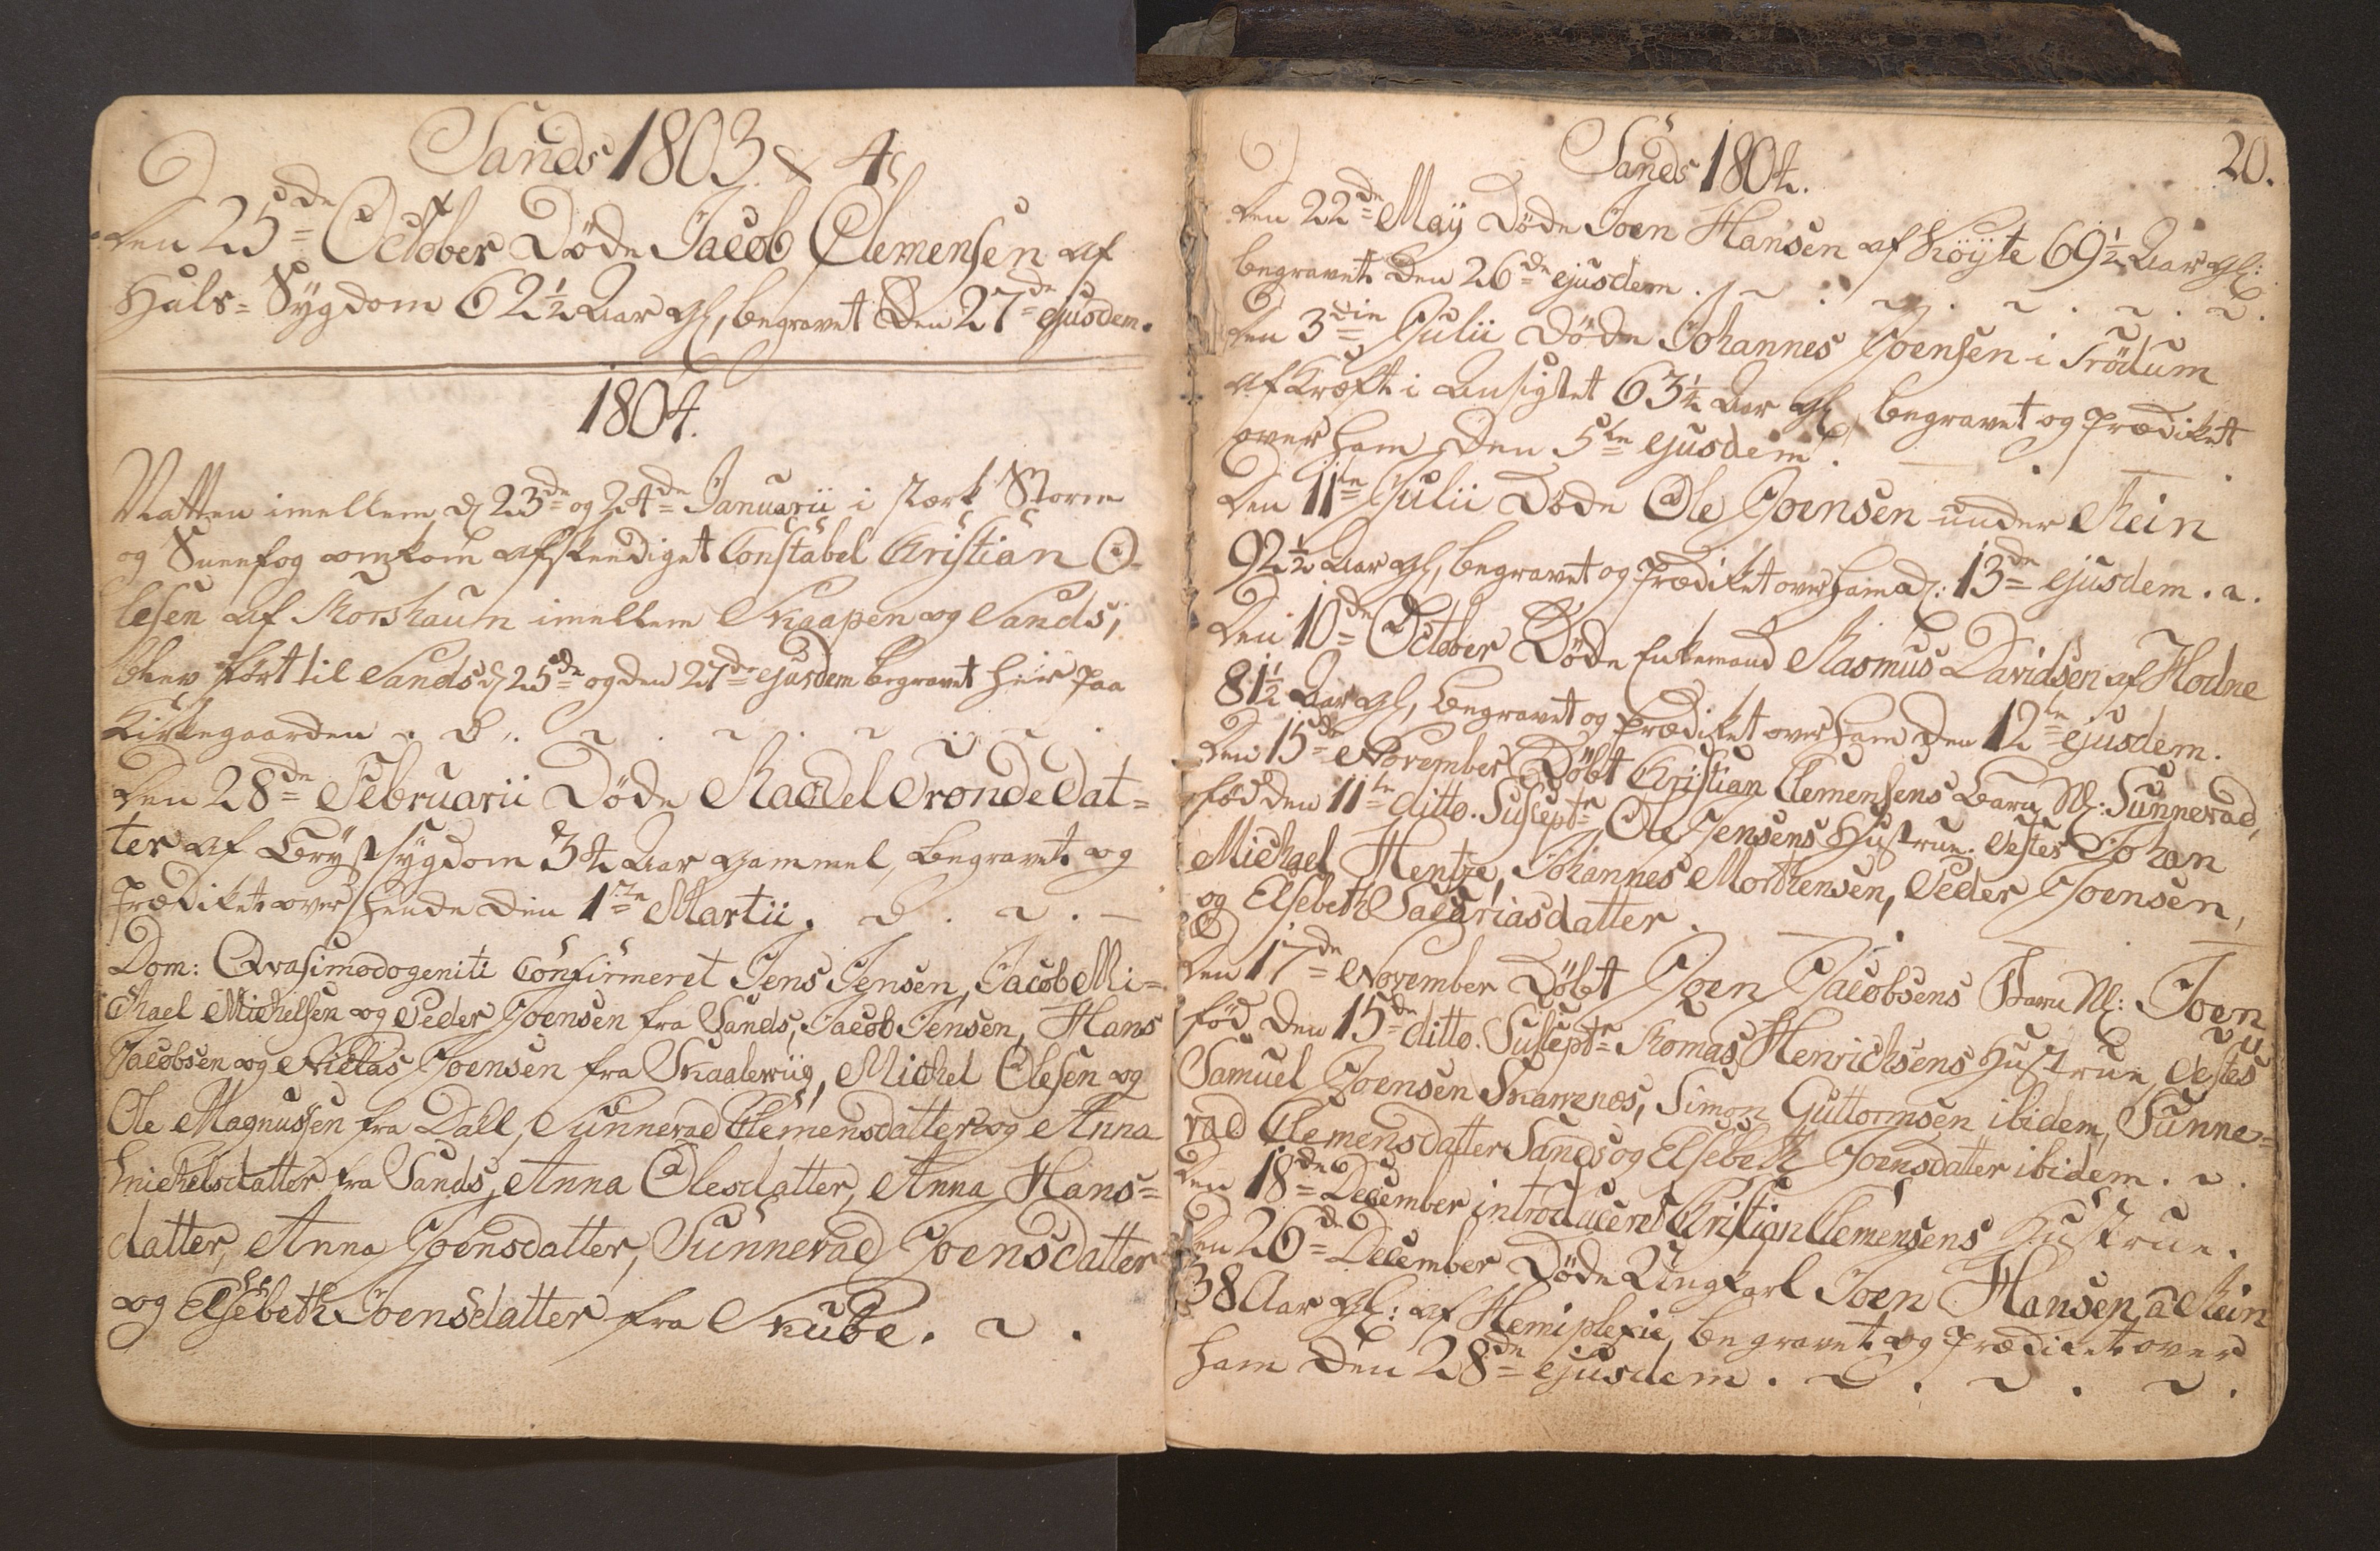 Sands 1803 & 4
Den 25de October Døde Jacob Clemensen af
Hals=Sygdom 62½ Aar gl, begravet Den 27de ejusdem.
1804.
Natten imellem d 23de og 24de Januarii i stærk Storm
og Sneefog omkom afskendiget Constabel Christian O-
lesen af Thorshaun imellem Skaapen og Sands,
blev ført til Sands d 25de og den 27de ejusdem begravet her paa
Kirkegaarden
Den 28de Februarii Døde Rachel Trondedat=
ter af Brystsygdom 34 Aar gammel, begravet og
Prædiket over hende den 1ste Martii.
Dom: Qvasimodogeniti Confirmeret Jens Jensen, Jacob Mi=
chael Michelsen og Peder Joensen fra Sands, Jacob Jensen, Hans
Jacobsen og Niclas Joensen fra Skaalewiig, Michel Olesen og
Ole Magnussen fra Dall, Sunnevad Clemensdatter og Anna
Michelsdatter fra Sands, Anna Olesdatter, Anna Hans=
datter, Anna Joensdatter, Sunnevad Joensdatter
og Elsebeth Joensdatter fra Skúøe.
Sands 1804.
20.
Den 22de Maÿ Døde Joen Hansen af 69½ Aar gl:
begravet Den 26de ejusdem.
Den 3die Julii Døde Johannes Joensen i Trödum
af Kræft i Ansigtet 63½ Aar gl, begravet og Prædiket
over ham Den 5te ejusdem.
Den 11te Julii Døde Ole Joensen under Rein
92½ Aar gl, begravet og Prædiket over ham d: 13de ejusdem.
Den 10de October Døde Enkemand Rasmus Davidsen af
81½ Aar gl, begravet og Prædiket over ham Den 12te ejusdem.
Den 15de November Døbt Christian Clemensens Barn Nl: Sunnevad,
fød den 11te ditto. Suscepte Ole Jensens Hustrue. Testes Johan
Michael Hentze, Johannes Morthensen, Peder Joensen,
og Elsebeth Sacariasdatter.
Den 17de November Døbt Joen Jacobsens Barn Nl: Joen
fød Den 15de ditto. Suscepte Thomas Henrichsens Hustrue, Testes
Samuel Joensen Skarvenes, Simon Guttormsen ibidem, Sunne=
vad Clemensdatter Sands og Elsebeth Joensdatter ibidem.
Den 18de December introduceret Christian Clemensens Hustrue.
Den 26de December Døde Ungkarl Joen Hansen a Rein
38 Aar gl: af Hemiplexie, begravet og Prædiket over
ham Den 28de ejusdem.